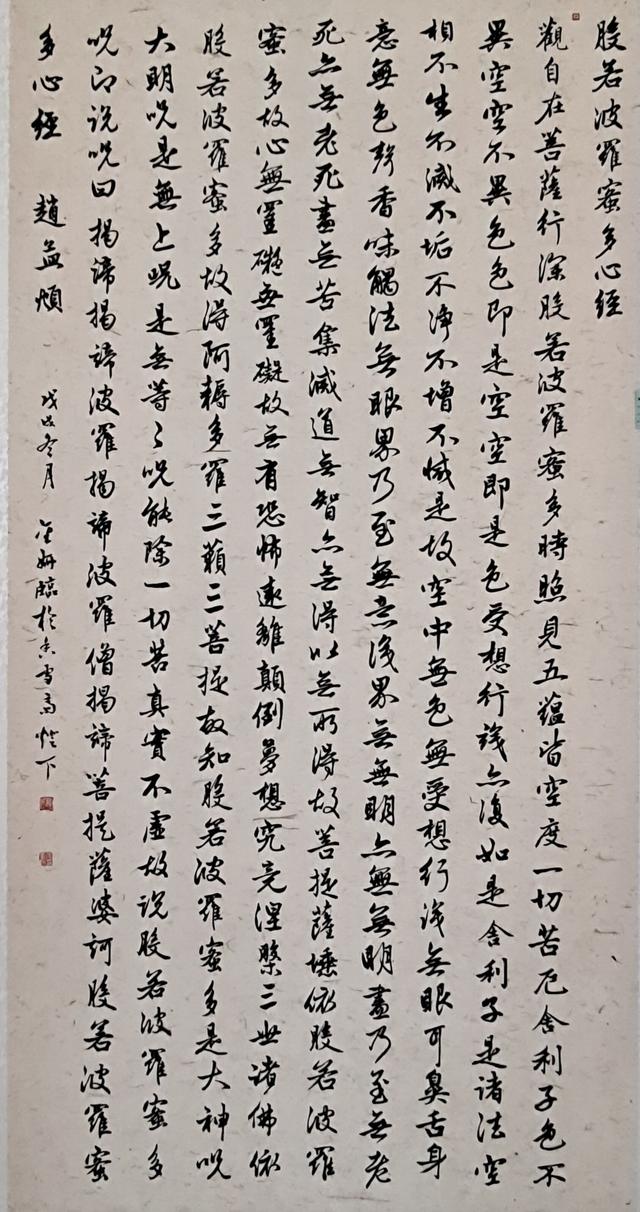 般若波羅蜜多心經
觀自在菩薩行深般若波羅蜜多時照見五蘊皆空度一切苦厄舍利子色不
異空空不異色色即是空空即是色受想行識亦復如是舍利子是諸法空
相不生不滅不垢不淨不增不減是故空中無色無受想行識無眼耳鼻舌身
意無色聲香味觸法無眼界乃至無意識界無無明亦無無明盡乃至無老
死亦無老死盡無苦集滅道無智亦無得以無所得故菩提薩埵依般若波羅
蜜多故心無罣礙無罣礙故無有恐怖遠離顛倒夢想究竟涅槃三世諸佛依
般若波羅蜜多故得阿耨多羅三藐三菩提故知般若波羅蜜多是大神呪
大明呪是無上呪是無等々呪能除一切苦真實不虛故說般若波羅蜜多
呪即說呪曰揭諦揭諦波羅揭諦波羅僧揭諦菩提薩婆訶般若波羅蜜
多心經 趙孟頫 戊戌冬月 妍臨於雪下